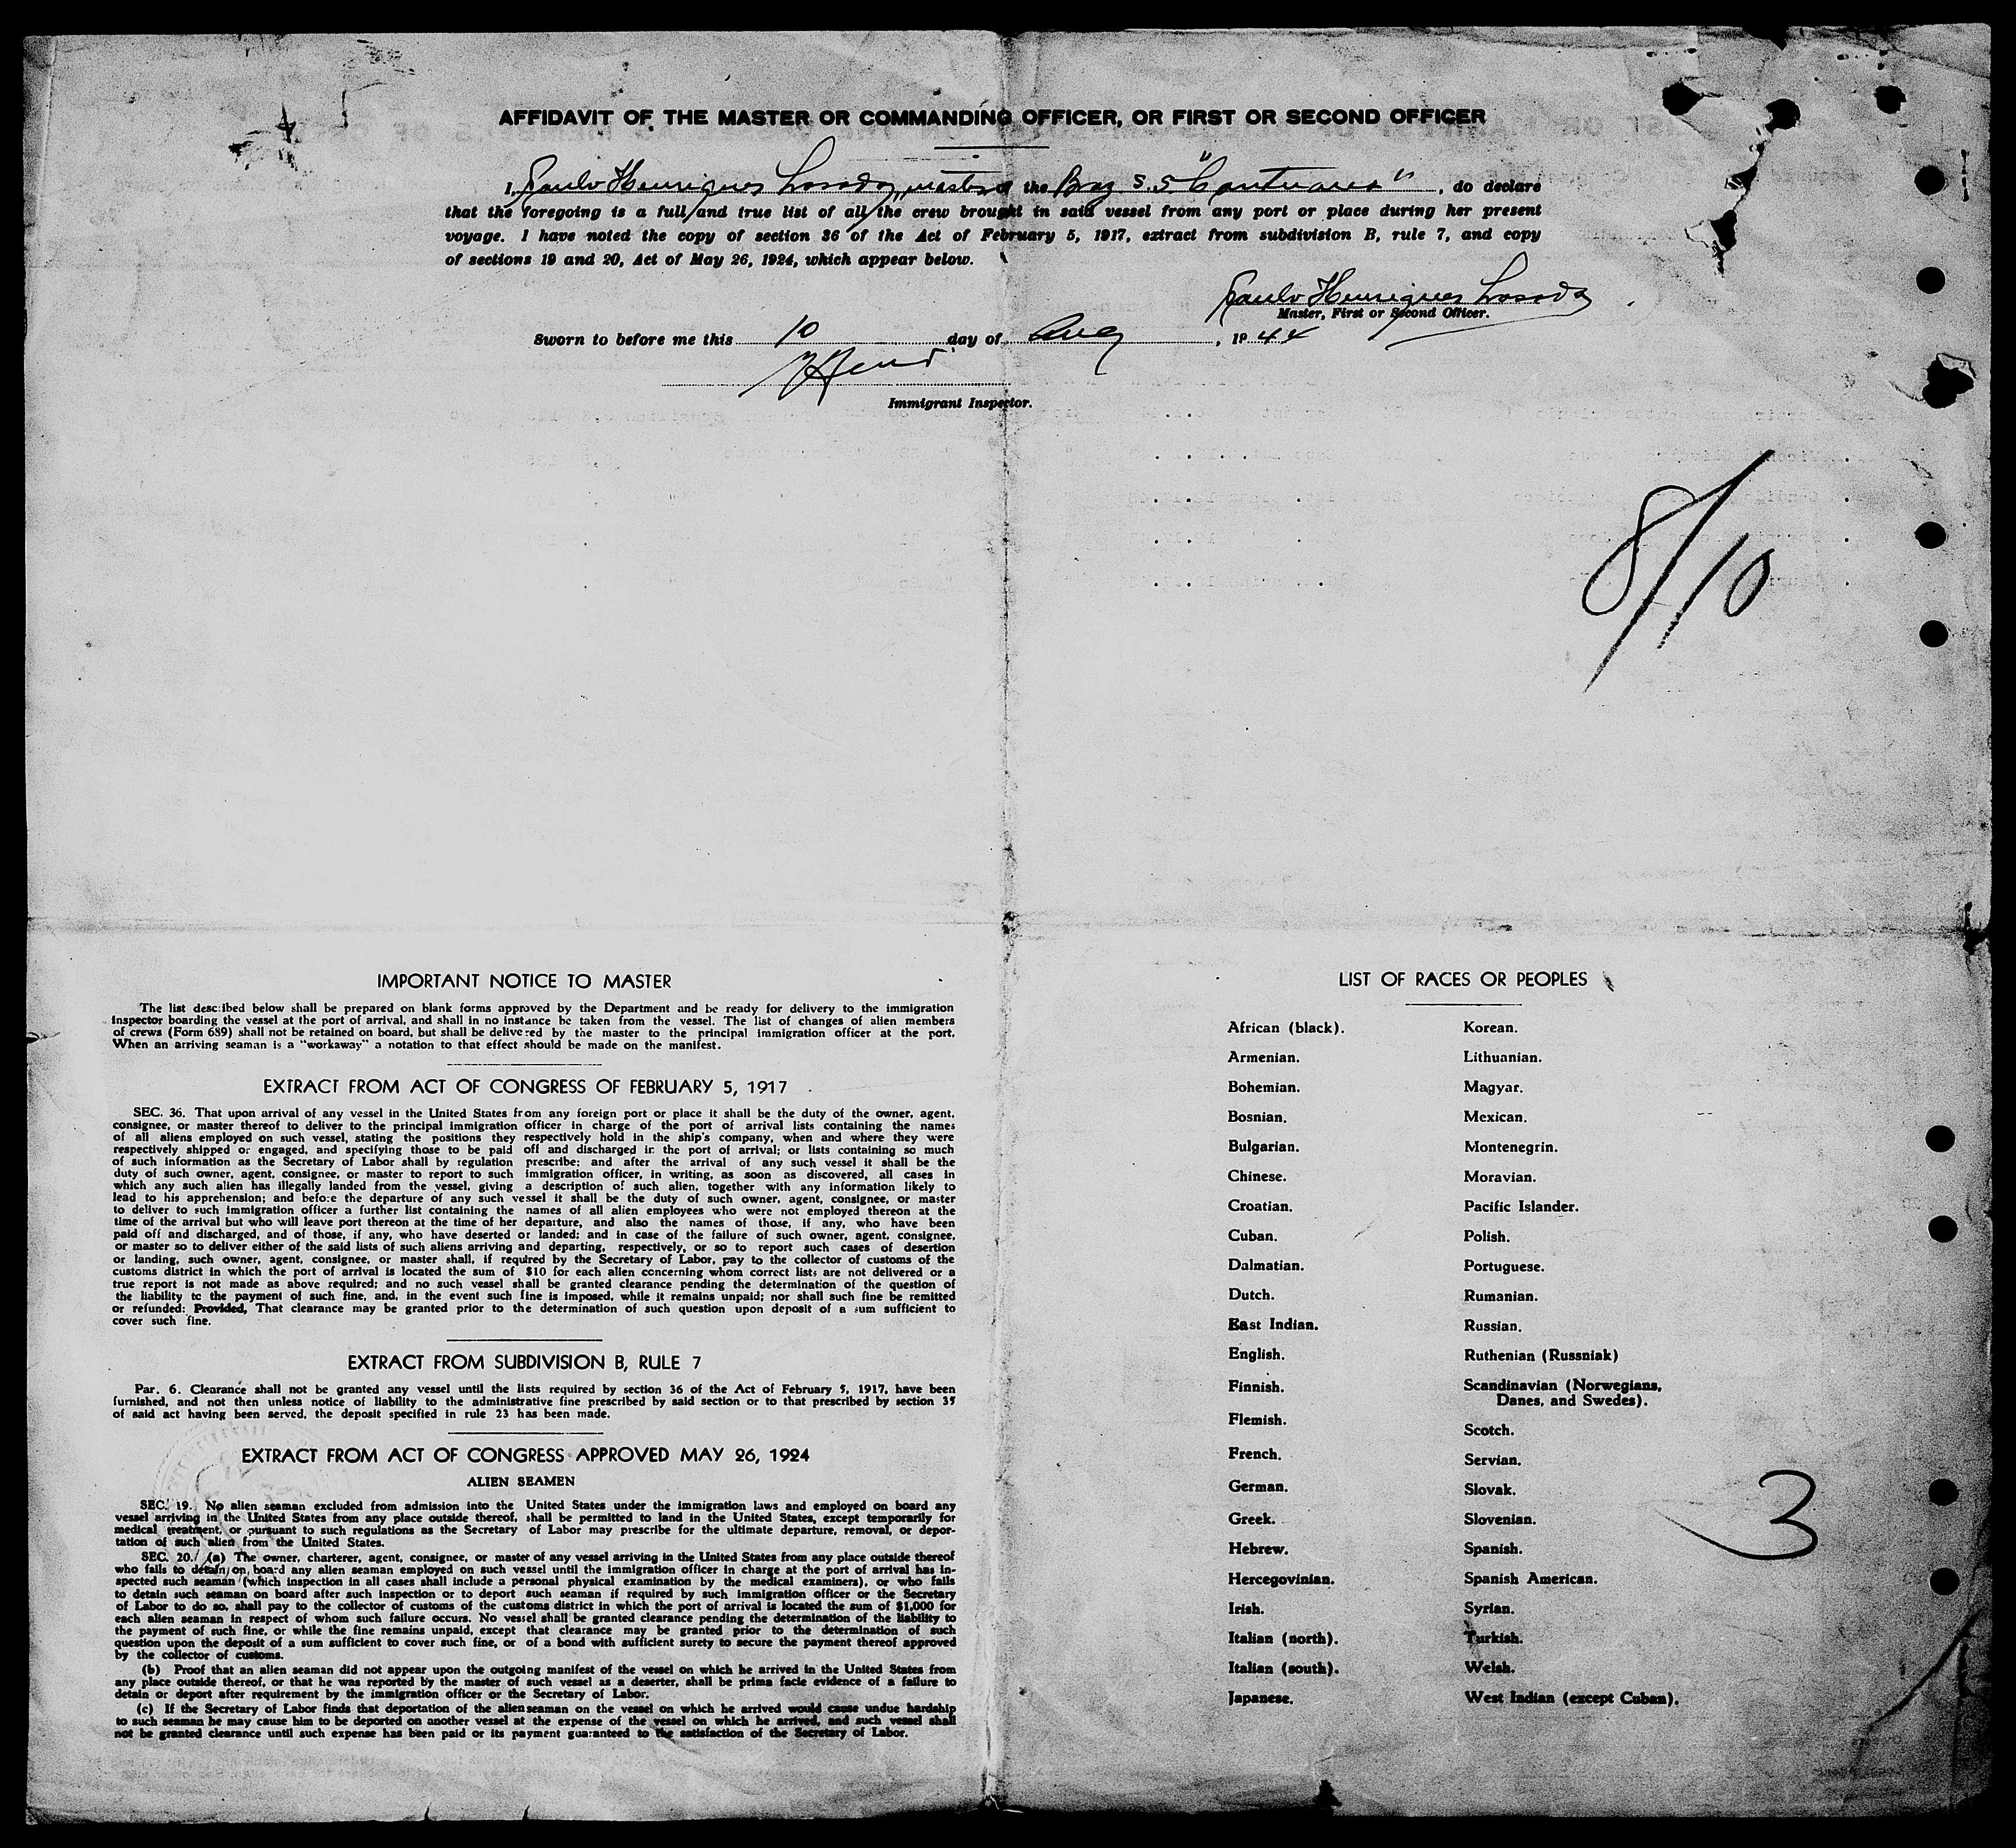 AFFIDAVIT OF THE MASTER OR COMMANDING OFFICER, OR FIRST OR SECOND OFFICER
I, Paulo Henriques Losada, master of the Braz S.S. "Cantuaria", do declare
that the foregoing is a full and true list of all the crew brought in said vessel from any port or place during her present
voyage. I have noted the copy of section 36 of the Act of February 5, 1917, extract from subdivision B, rule 7, and copy
of sections 19 and 20, Act of May 26, 1924, which appear below.
Paulo Henriques Losada
Master, First or Second Officer.
Sworn to before me this 10 day of Aug, 1944
Immigrant Inspector.
8/10
IMPORTANT NOTICE TO MASTER
The list described below shall be prepared on blank forms approved by the Department and be ready for delivery to the immigration
inspector boarding the vessel at the port of arrival, and shall in no instance be taken from the vessel. The list of changes of alien members
of crews (Form 689) shall not be retained on board, but shall be delivered by the master to the principal immigration officer at the port.
When an arriving seaman is a "workaway" a notation to that effect should be made on the manifest.
EXTRACT FROM ACT OF CONGRESS OF FEBRUARY 5, 1917
SEC. 36. That upon arrival of any vessel in the United States from any foreign port or place it shall be the duty of the owner, agent,
consignee, or master thereof to deliver to the principal immigration officer in charge of the port of arrival lists containing the names
of all aliens employed on such vessel, stating the positions they respectively hold in the ship's company, when and where they were
respectively shipped or engaged, and specifying those to be paid off and discharged in the port of arrival; or lists containing so much
of such information as the Secretary of Labor shall by regulation prescribe; and after the arrival of any such vessel it shall be the
duty of such owner, agent, consignee, or master to report to such immigration officer, in writing, as soon as discovered, all cases in
which any such alien has illegally landed from the vessel, giving a description of such alien, together with any information likely to
lead to his apprehension; and before the departure of any such vessel it shall be the duty of such owner, agent, consignee, or master
to deliver to such immigration officer a further list containing the names of all alien employees who were not employed thereon at the
time of the arrival but who will leave port thereon at the time of her departure, and also the names of those, if any, who have been
paid off and discharged, and of those, if any, who have deserted or landed; and in case of the failure of such owner, agent, consignee,
or master so to deliver either of the said lists of such aliens arriving and departing, respectively, or so to report such cases of desertion
or landing, such owner, agent, consignee, or master shall, if required by the Secretary of Labor, pay to the collector of customs of the
customs district in which the port of arrival is located the sum of $10 for each alien concerning whom correct lists are not delivered or a
true report is not made as above required; and no such vessel shall be granted clearance pending the determination of the question of
the liability to the payment of such fine, and, in the event such fine is imposed, while it remains unpaid; nor shall such fine be remitted
or refunded: Provided, That clearance may be granted prior to the determination of such question upon deposit of a sum sufficient to
cover such fine.
EXTRACT FROM SUBDIVISION B, RULE 7
Par. 6. Clearance shall not be granted any vessel until the lists required by section 36 of the Act of February 5, 1917, have been
furnished, and not then unless notice of liability to the administrative fine prescribed by said section or to that prescribed by section 35
of said act having been served, the deposit specified in rule 23 has been made.
EXTRACT FROM ACT OF CONGRESS APPROVED MAY 26, 1924
ALIEN SEAMEN
SEC. 19. No alien seaman excluded from admission into the United States under the immigration laws and employed on board any
vessel arriving in the United States from any place outside thereof, shall be permitted to land in the United States, except temporarily for
medical treatment, or pursuant to such regulations as the Secretary of Labor may prescribe for the ultimate departure, removal, or depor-
tation of such alien from the United States.
SEC. 20. (a) The owner, charterer, agent, consignee, or master of any vessel arriving in the United States from any place outside thereof
who fails to detain on board any alien seaman employed on such vessel until the immigration officer in charge at the port of arrival has in-
spected such seaman (which inspection in all cases shall include a personal physical examination by the medical examiners), or who fails
to detain such seaman on board after such inspection or to deport such seaman if required by such immigration officer or the Secretary
of Labor to do so, shall pay to the collector of customs of the customs district in which the port of arrival is located the sum of $1,000 for
each alien seaman in respect of whom such failure occurs. No vessel shall be granted clearance pending the determination of the liability to
the payment of such fine, or while the fine remains unpaid, except that clearance may be granted prior to the determination of such
question upon the deposit of a sum sufficient to cover such fine, or of a bond with sufficient surety to secure the payment thereof approved
by the collector of customs.
(b) Proof that an alien seaman did not appear upon the outgoing manifest of the vessel on which he arrived in the United States from
any place outside thereof, or that he was reported by the master of such vessel as a deserter, shall be prima facie evidence of a failure to
detain or deport after requirement by the immigration officer or the Secretary of Labor.
(c) If the Secretary of Labor finds that deportation of the alien seaman on the vessel on which he arrived would cause undue hardship
to such seaman he may cause him to be deported on another vessel at the expense of the vessel on which he arrived, and such vessel shall
not be granted clearance until such expense has been paid or its payment guaranteed to the satisfaction of the Secretary of Labor.
LIST OF RACES OR PEOPLES
African (black).
Armenian.
Bohemian.
Bosnian.
Bulgarian.
Chinese.
Croatian.
Cuban.
Dalmatian.
Dutch.
East Indian.
English.
Finnish.
Flemish.
French.
German.
Greek.
Hebrew.
Hercegovinian.
Irish.
Italian (north).
Italian (south).
Japanese.
Korean.
Lithuanian.
Magyar.
Mexican.
Montenegrin.
Moravian.
Pacific Islander.
Polish.
Portuguese.
Rumanian.
Russian.
Ruthenian (Russniak)
Scandinavian (Norwegians,
Danes, and Swedes).
Scotch.
Servian.
Slovak.
Slovenian.
Spanish.
Spanish American.
Syrian.
Turkish.
Welsh.
West Indian (except Cuban).
3